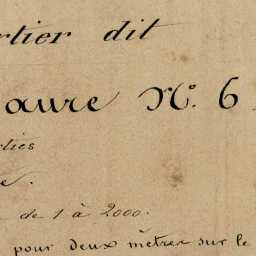 rtier dit
aure N.º 6
rties
e.
de 1 à 2000.
pour deux mètres sur le